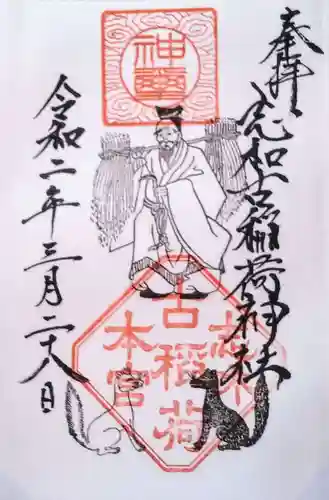 奉拝
志和古稲荷神社
令和二年三月二十八日
神璽
志和
古稲荷
本宮